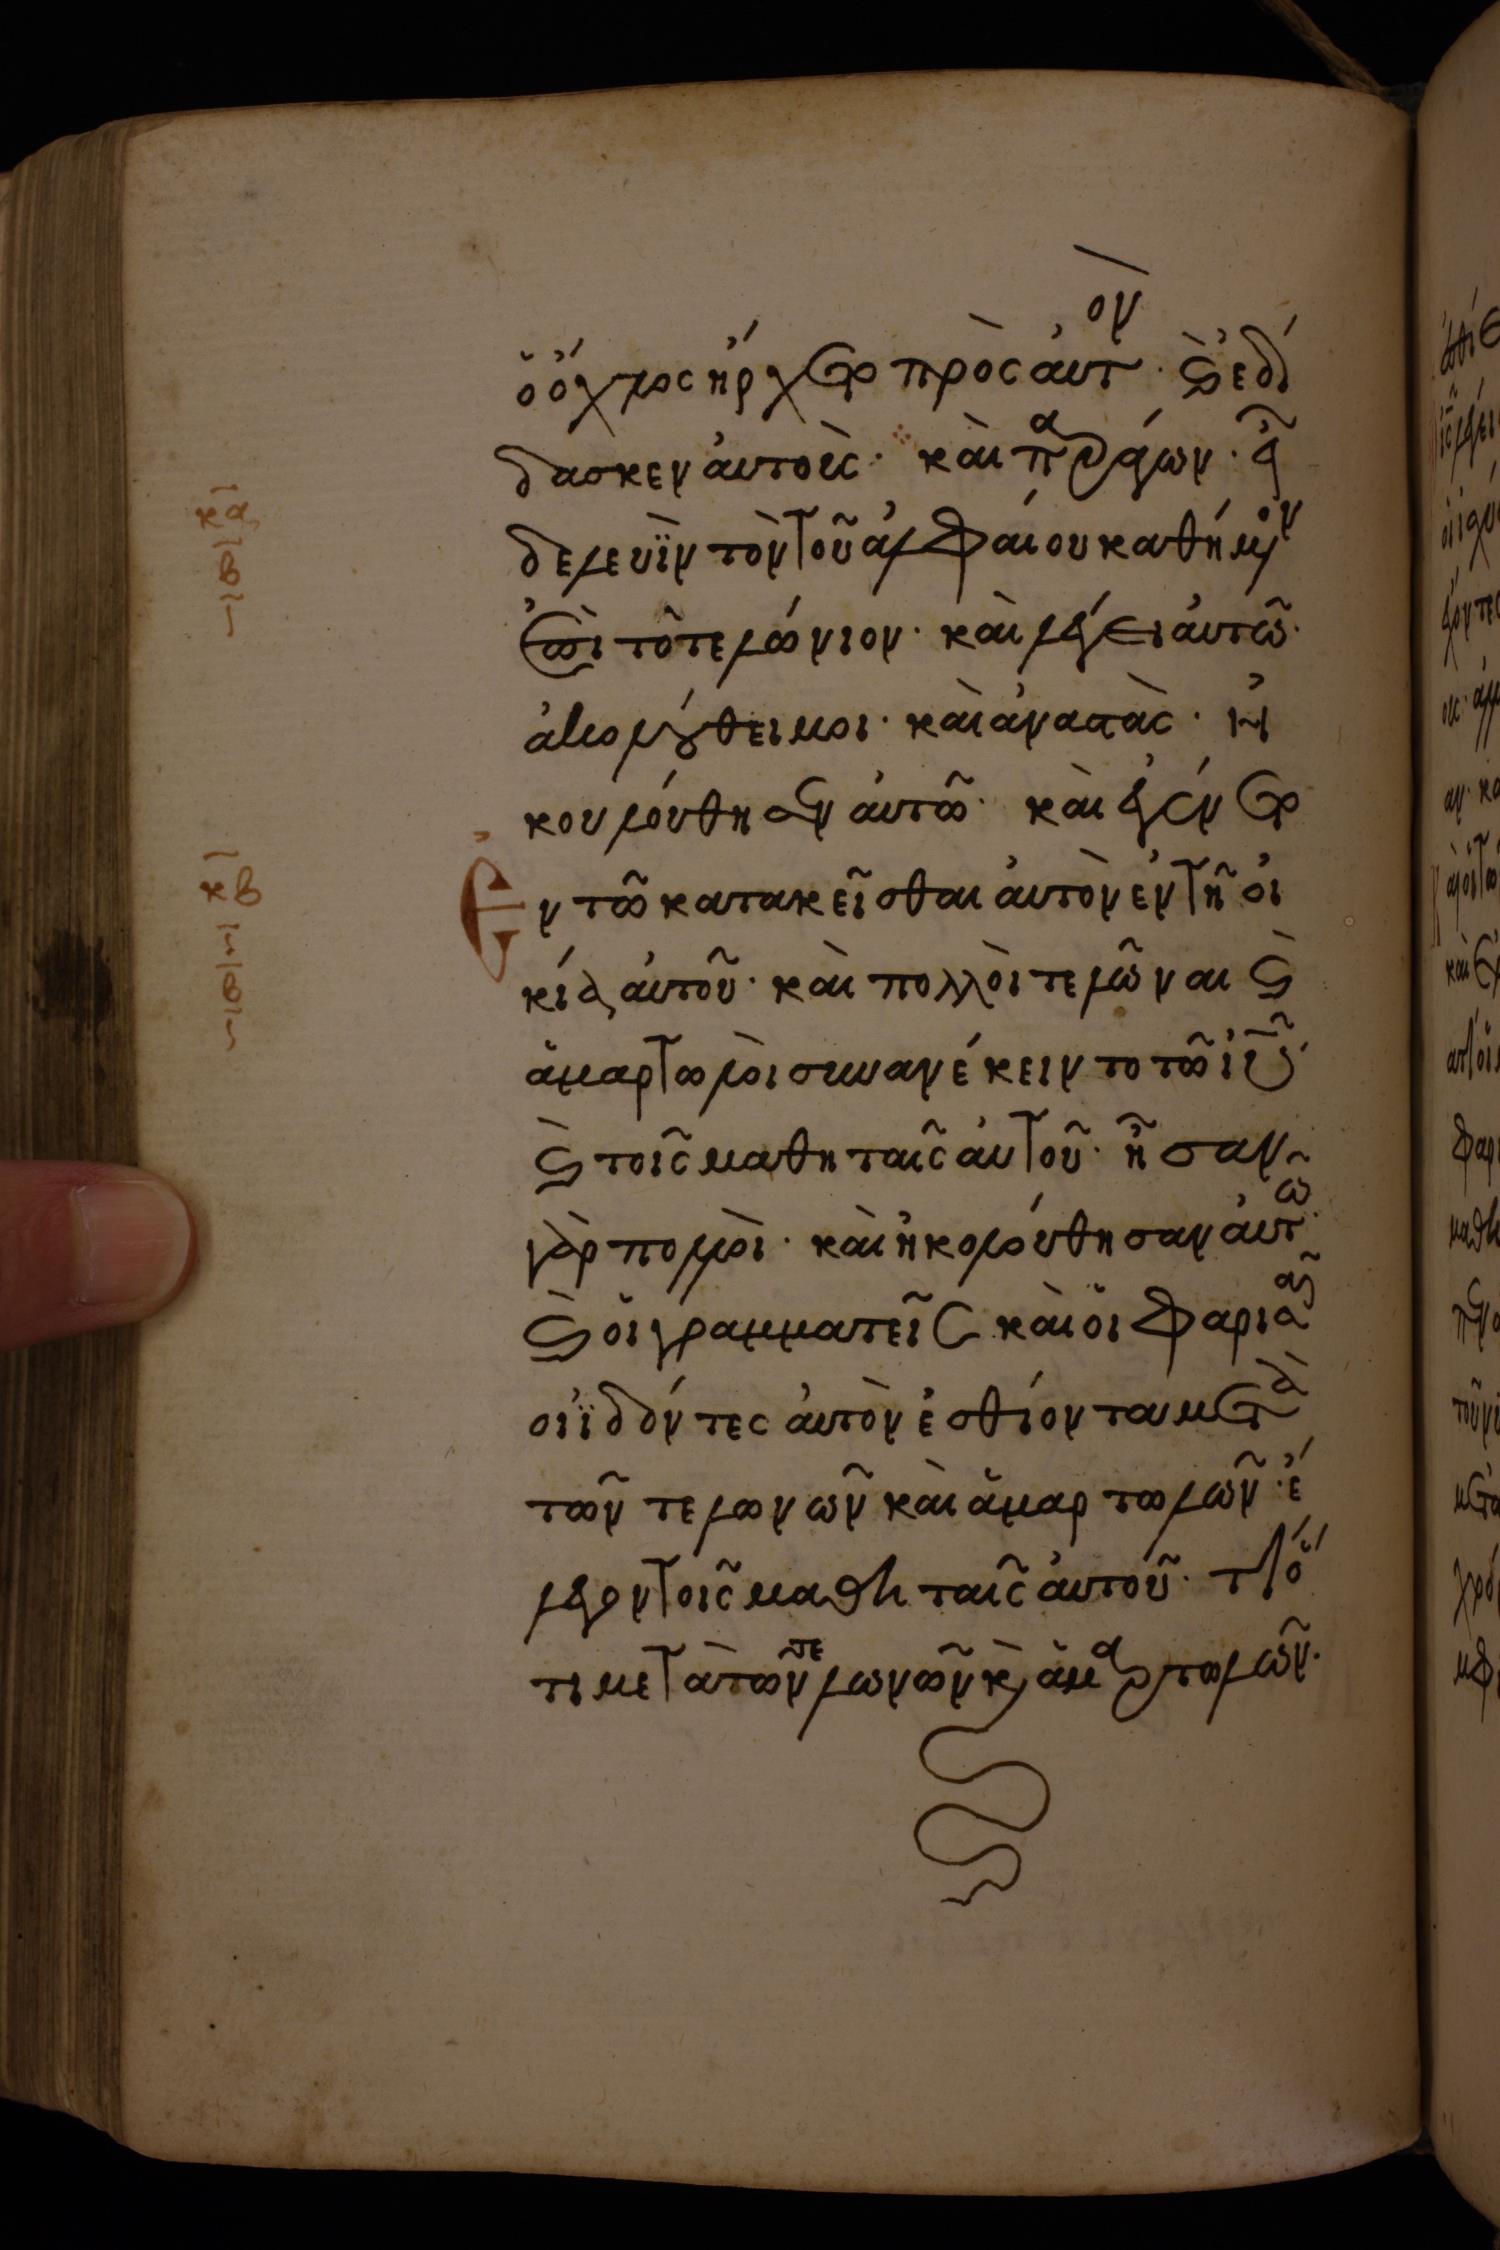 ὁ ὄχλος ἤρχετο πρὸς αὐτὸν· καὶ ἐδί
δασκεν αὐτοὺς· καὶ παράγων· εἶ
δε λευῒν τὸν τοῦ ἀλφαίου καθήμενον
ἐπὶ τὸ τελώνιον· καὶ λέγει αὐτῶ·
ἀκολούθει μοι· καὶ ἀναστὰς· ἠ
κολούθησεν αὐτῶ· καὶ ἐγένετο
κα
ιβ
Ἐν τῶ κατακεῖσθαι αὐτὸν ἐν τῆ οἰ
κία αὐτοῦ· καὶ πολλοὶ τελῶναι καὶ
ἁμαρτωλοὶ συνανέκειντο τῶ ἰῦ·
καὶ τοῖς μαθηταῖς αὐτοῦ· ἦσαν
γὰρ πολλοὶ· καὶ ἠκολούθησαν αὐτῶ·
καὶ οἱ γραμματεῖς καὶ οἱ φαρισαῖ
οι ἰδόντες αὐτὸν ἐσθίοντα μετὰ
τῶν τελωνῶν καὶ ἁμαρτωλῶν· ἔ
λεγον τοῖς μαθηταῖς αὐτοῦ· τί ὅ
τι μετὰ τῶν τελωνῶν καὶ ἁμαρτωλῶν·
κβ